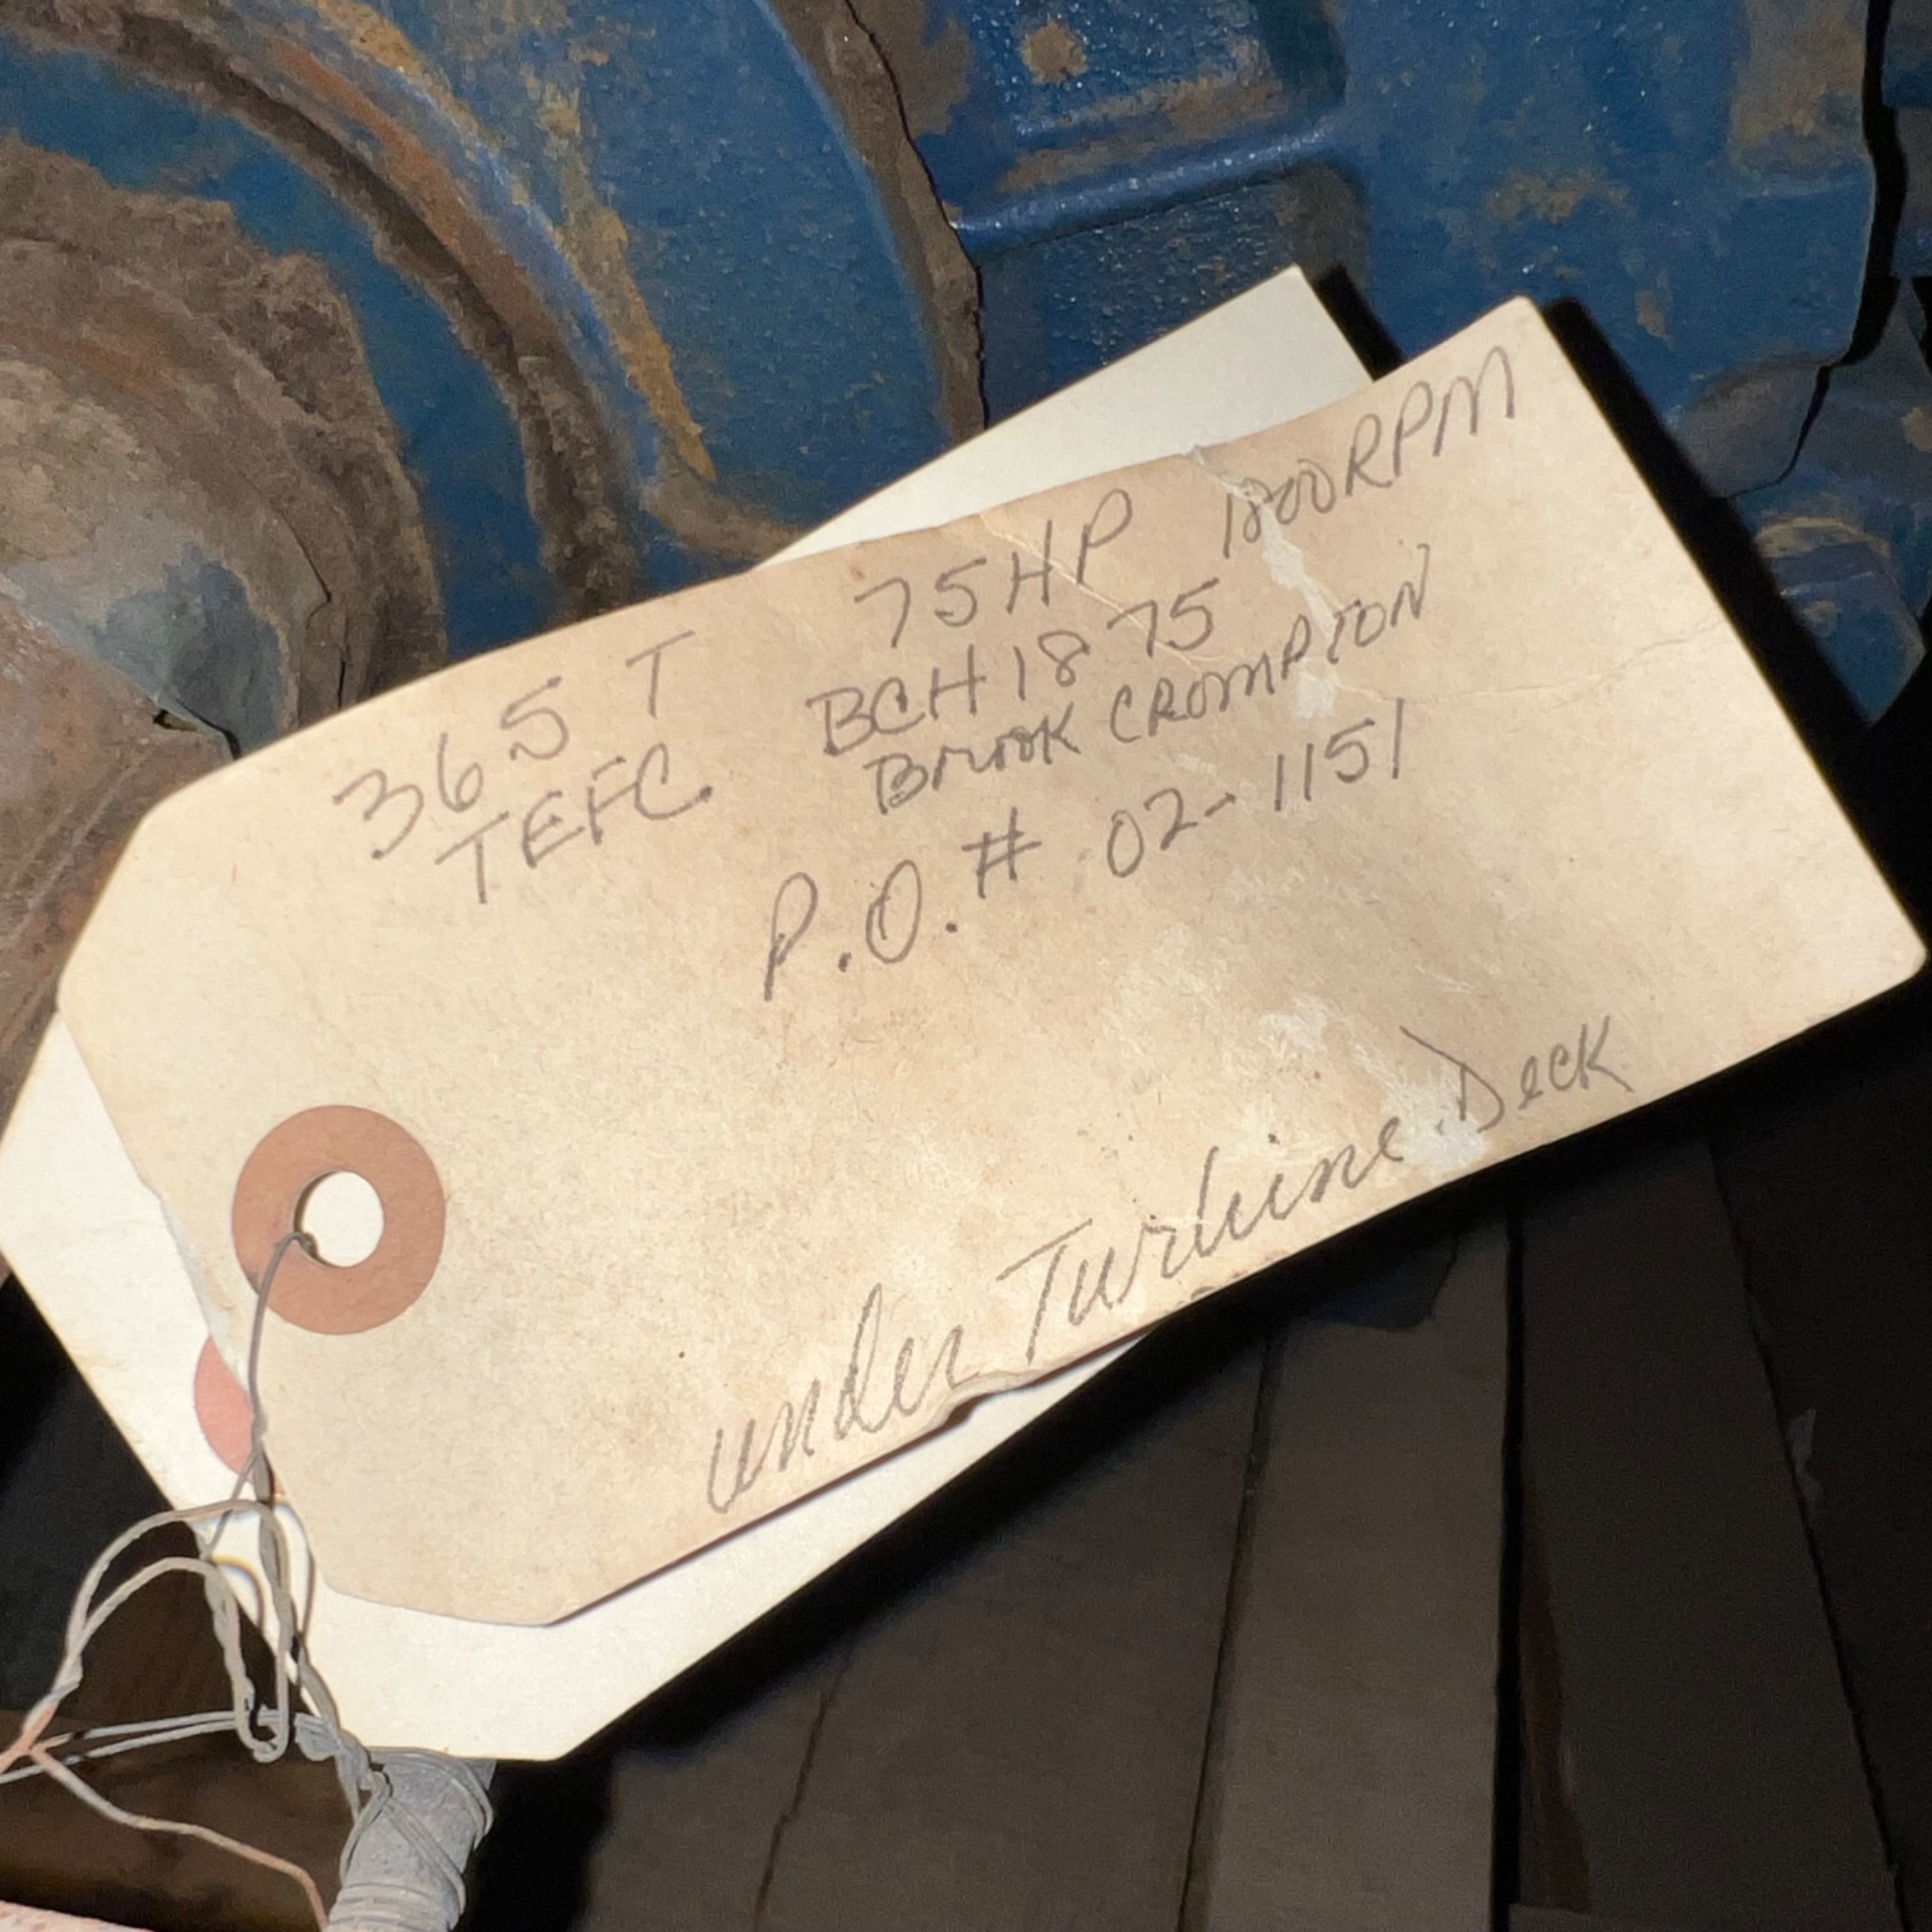 365 T 75HP 1800RPM
TEFC BCH1875
Brook CROMPTON
P.O.# 02-1151
under Turbine Deck